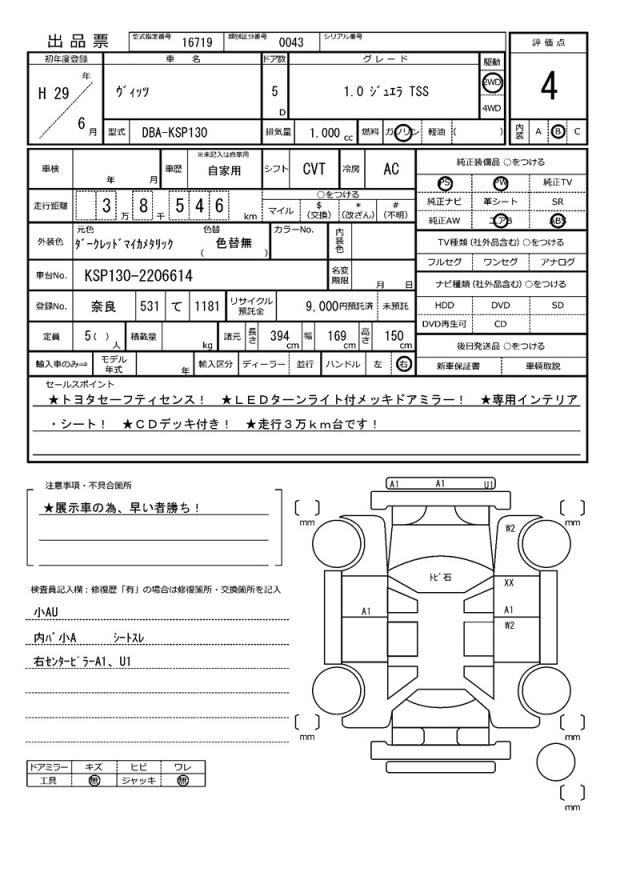 出品票 型式指定番号 16719 類別区分番号 0043 シリアル番号
初年度登録 車名 ドア数 グレード 駆動 評価点
H 29 年 6 月 ヴィッツ 5 D 1.0 ジュエラ TSS 2WD 4WD 4
型式 DBA-KSP130 排気量 1,000 cc 燃料 ガソリン 軽油 ( ) 内装 A B C
車検 年 月 車歴 ※未記入は自家用 自家用 シフト CVT 冷房 AC
純正装備品 ○をつける
PS PW 純正TV
純正ナビ 革シート SR
純正AW エアB ABS
走行距離 3 万 8 千 5 4 6 km
○をつける
マイル $ (交換) * (改ざん) # (不明)
外装色 元色 ダークレッドマイカメタリック 色替 ( 色替無 ) カラーNo. 内装色
TV種類 (社外品含む) ○をつける
フルセグ ワンセグ アナログ
車台No. KSP130-2206614 名変期限 月 日
ナビ種類 (社外品含む) ○をつける
HDD DVD SD
DVD再生可 CD
登録No. 奈良 531 て 1181 リサイクル預託金 9,000円預託済 未預託
定員 5 ( ) 人 積載量 kg 諸元 長さ 394 cm 幅 169 cm 高さ 150 cm
後日発送品 ○をつける
新車保証書 車輌取説
輸入車のみ⇒ モデル年式 年 輸入区分 ディーラー 並行 ハンドル 左 右
セールスポイント
★トヨタセーフティセンス! ★LEDターンライト付メッキドアミラー! ★専用インテリア
・シート! ★CDデッキ付き! ★走行3万km台です!
注意事項・不具合箇所
★展示車の為、早い者勝ち!
検査員記入欄:修復歴「有」の場合は修復箇所・交換箇所を記入
小AU
内バ小A シートスレ
右センターピラーA1、U1
ドアミラー キズ ヒビ ワレ
工具 無 ジャッキ 無
A1 A1 U1
[ ] mm
[ ] mm
W2
トビ石
XX
A1
A1
W2
[ ] mm
[ ] mm
[ ] mm